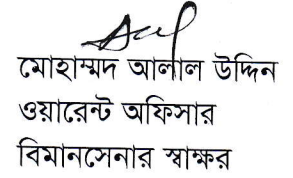 মোহাম্মদ আলাল উদ্দিন
ওয়ারেন্ট অফিসার
বিমানসেনার স্বাক্ষর